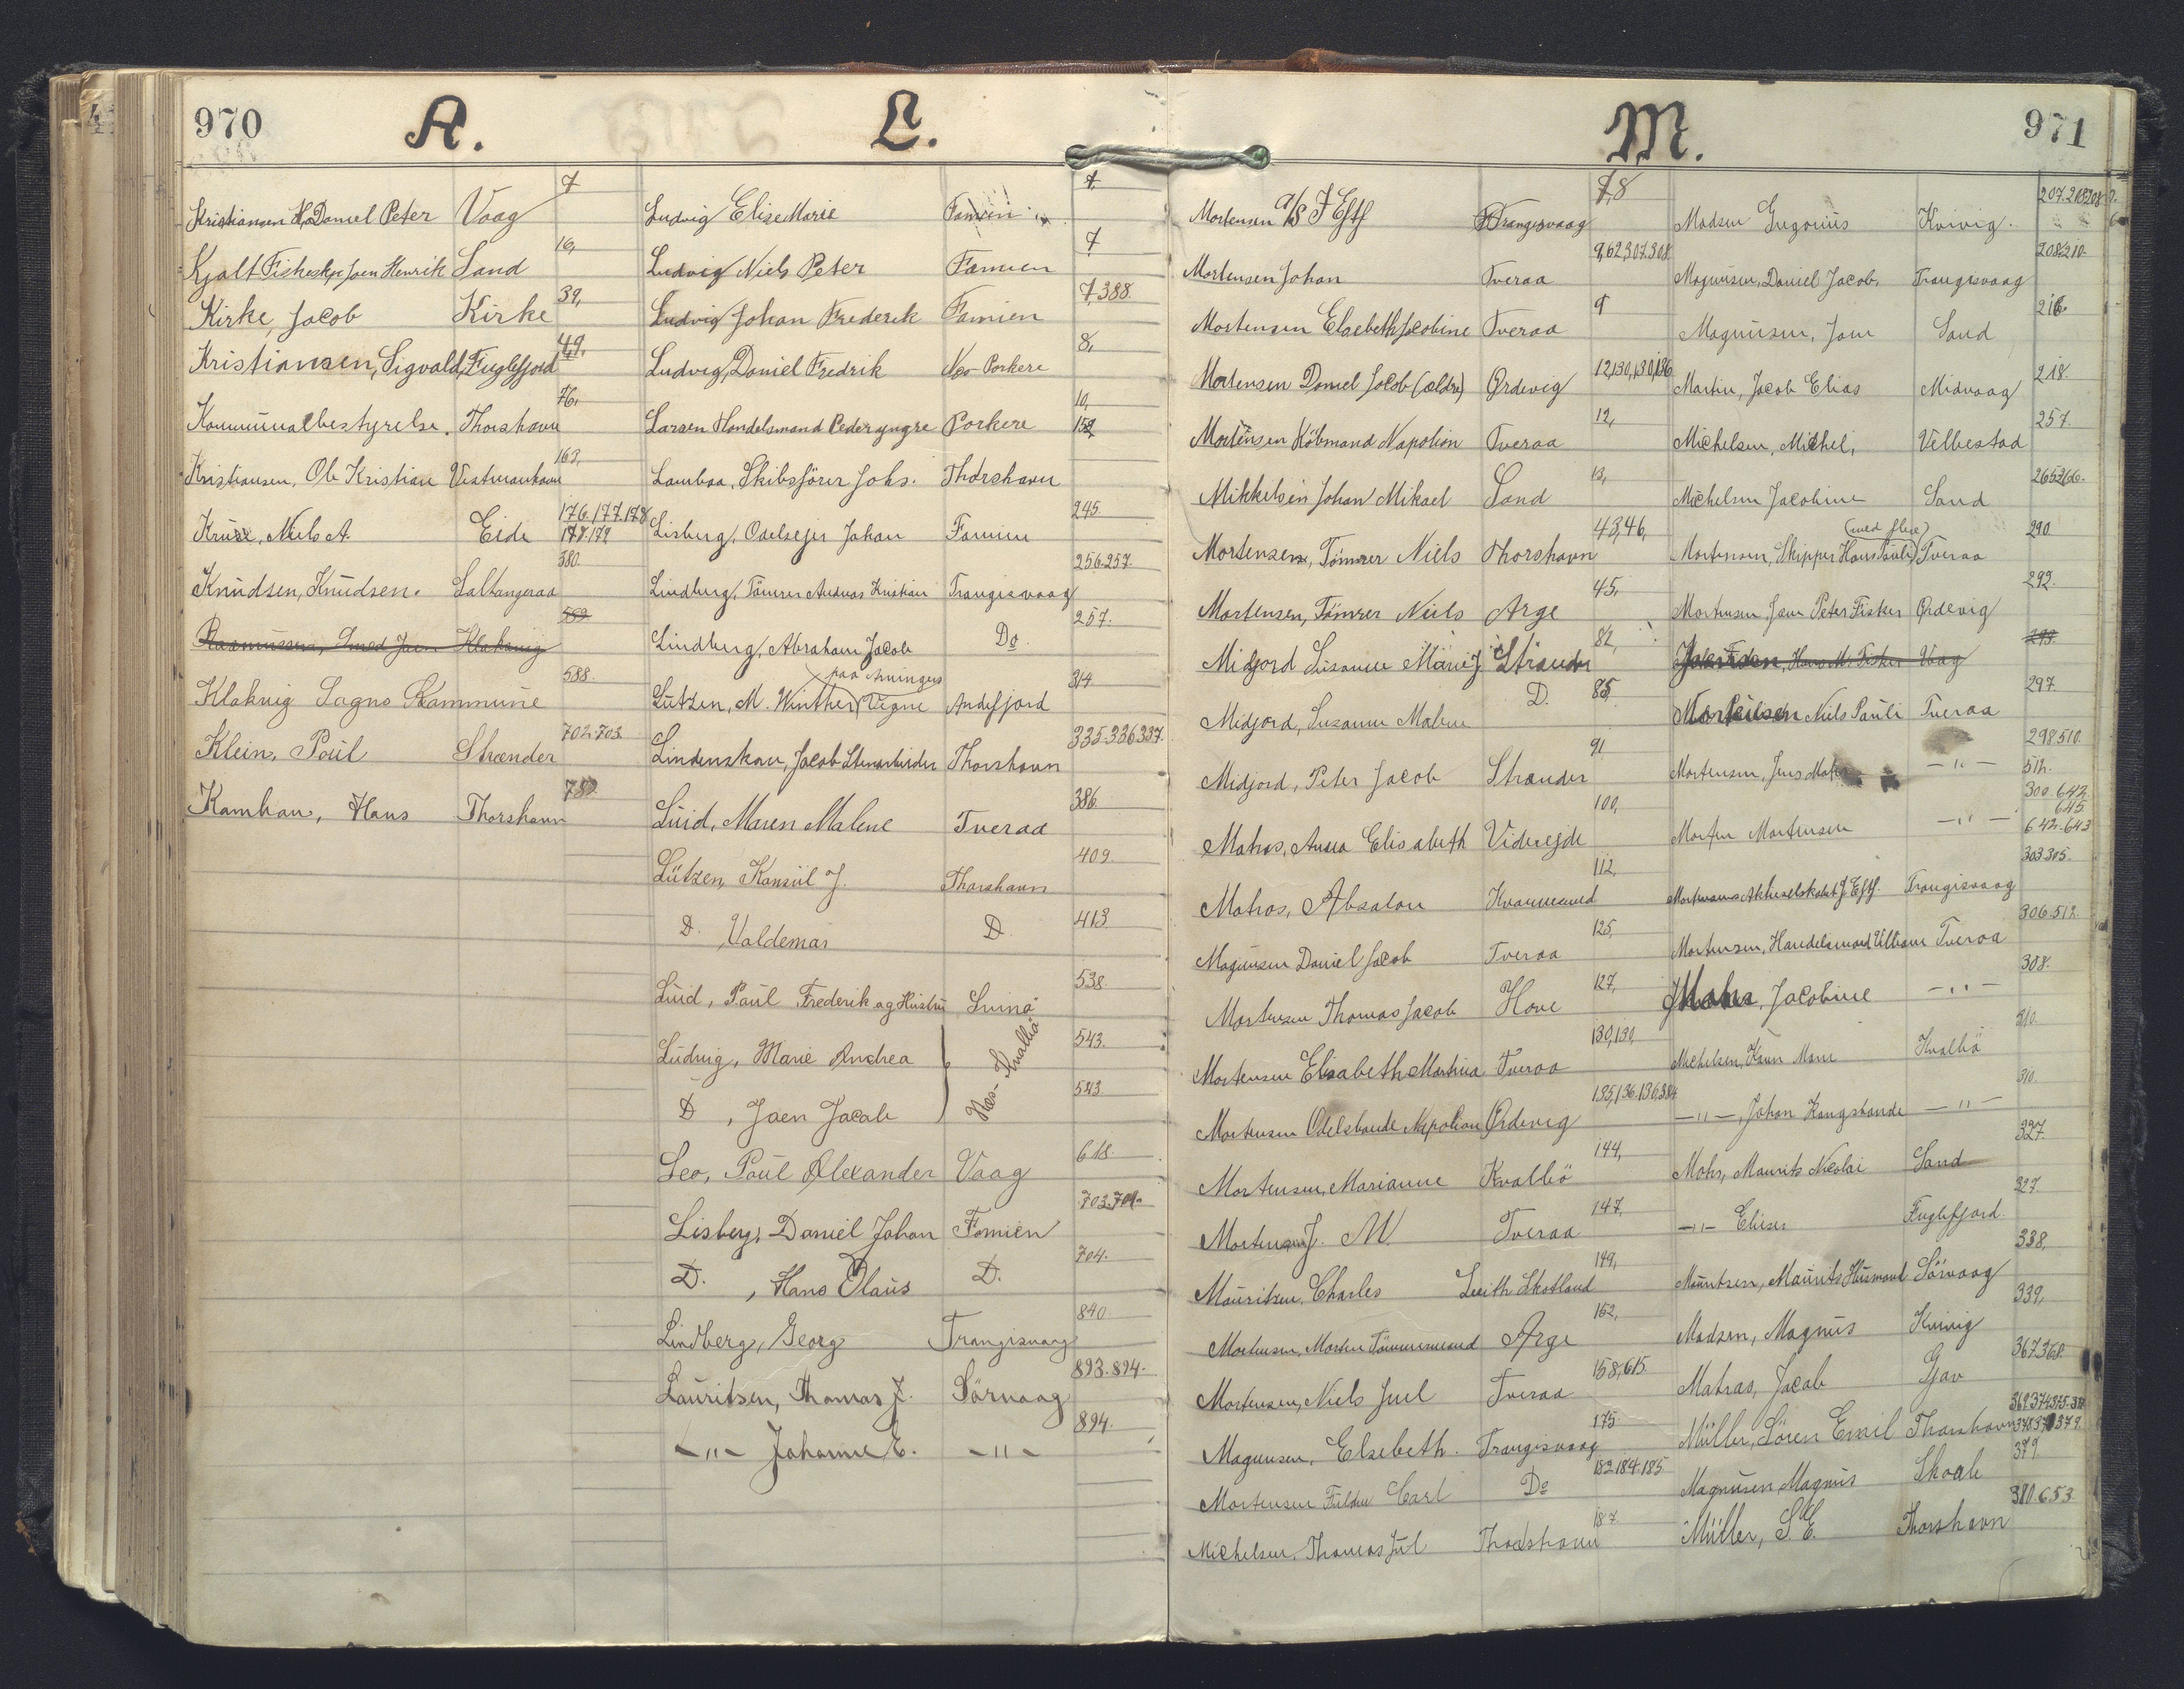 970
K.
7
Kristiansen Daniel Peter Vaag
16,
Kjalt Fiskeskpr Joen Henrik Sand
39,
Kirke, Jacob Kirke
49,
Kristiansen, Sigvald, Fuglefjord
76,
Kommunalbestyrelse. Thorshavn
163,
Kristiansen, Ole Kristian Vestmanhavn
176.177.178
Kruse, Niels A. Eide 178.179
380.
Knudsen, Knudsen. Saltangeraa
589
Rasmussen, Smed Joen Klaksvig
588.
Klaksvig Sogns Kommune
702.703.
Klein, Poul Strænder
780.
Kamban, Hans Thorshavn
L.
7.
Ludvig Elise Marie Famien
7
Ludvig Niels Peter Famien
7,388.
Ludvig Johan Frederik Famien
8,
Ludvig, Daniel Fredrik Nes-Porkere
10,
Larsen Handelsmand Peder yngre Porkere 152,
Lamboa, Skibsfører Johs. Thorshavn
245.
Lisberg, Odelsejer Johan Famien
256.257.
Lindberg, Tømrer Andreas Kristian Trangisvaag
257.
Lindberg, Abraham Jacob Do.
314.
paa Aninger
Lützen, M. Winther Vigne Andefjord
335.336.337.
Lindenskov, Jacob Stenarbeider Thorshavn
386.
Luid, Maren Malene Tveraa
409.
Lützen, Konsul J. Thorshavn
413.
D. Valdemar D.
538.
Luid, Poul Frederik og Hustru Suinø
543.
Ludvig, Marie Andrea
Nes-Kvalbø
543.
D, Joen Jacob
618.
Leo, Poul Alexander Vaag
703.701.
Lisberg, Daniel Johan Famien
704.
D., Hans Olaus D.
840.
Lindberg, Georg Trangisvaag
893.894.
Lauritsen, Thomas J. Sørvaag
894.
-"- Johanne E. -"-
971
M.
7,8
Mortensen A/S J Eftf Trangisvaag
9,62,307.308.
Mortensen Johan Tveraa
9
Mortensen Elsebeth Jacobine Tveraa
12,130,130,136
Mortensen Daniel Jacob (ældre) Ørdevig
12,
Mortensen Købmand Napolion Tveraa
13,
Mikkelsen Johan Mikael Sand
43,46,
Mortensen, Tømrer Niels Thorshavn
45,
Mortensen, Tømrer Niels Arge
82,
Midjord Susanne Marie J. Strænder
85,
Midjord, Susanne Malene D.
91
Midjord, Peter Jacob Strænder
100,
Matras, Anna Elisabeth Viderejde
112,
Matras, Absalon Kvannesund
125,
Magnusen Daniel Jacob Tveraa
127,
Mortensen Thomas Jacob Hove
130,130,
Mortensen Elisabeth Martina Tveraa
135,136.136,384
Mortensen Odelsbonde Napolion Ørdevig
144,
Mortensen, Marianne Kvalbø
147,
Mortensen J. M. Tveraa
149,
Mauritsen, Charles Leith Skotland
152,
Mortensen, Morten Tømmermand Arge
158,615.
Mortensen, Niels Juel Tveraa
175.
Magnusen, Elsebeth. Trangisvaag
182.184.185
Mortensen Carl Do
187.
Michelsen, Thomas Jul Thorshavn
Madsen Gregorius Kvivig.
208.210.
Magnusen, Daniel Jacob. Trangisvaag
216.
Magnusen, Joen Sand
218.
Martin, Jacob Elias Midvaag
257.
Michelsen, Michel, Velbestad
265.266.
Michelsen Jacobine Sand
(med flere)
290.
Mortensen, Skipper Hans Pauli Tveraa
292.
Mortensen Joen Peter Fisker Ørdevig
293.
Hans M. Fisker Vaag
297.
Mortensen Niels Pauli Tveraa
298.510.
Mortensen, Jens -"- 512.
300.642.
645
Morten Mortensen -"- 642-643
303.305.
Mortensens Aktieselskabet J. Eftf. Trangisvaag
306.512.
Mortensen, Handelsmand William Tveraa
308.
Mohr, Jacobine -"-
310.
Michelsen, Marie Kvalbø
310.
-"-, Johan Kongsbonde -"-
327.
Mohr, Maurits Nicolai Sand
327.
-"- Elieser Fuglefjord.
338,
Mauritsen, Maurits Husmand Sørvaag
339,
Madsen, Magnus Kvivig
367.368.
Matras, Jacob Gjov
Müller, Sören Emil Thorshavn
379.
Magnusen, Magnus Skaale
380.653.
Müller, S. E. Thorshavn